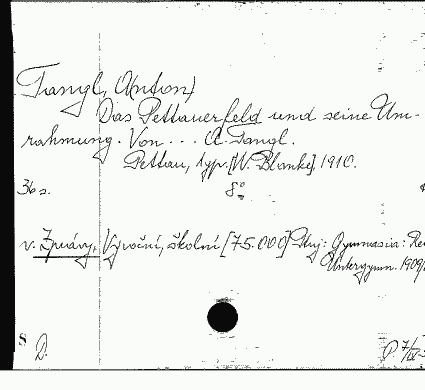 Tangl, A(nton)
Das Pettauerfeld und seine Um-
rahmung. Von ... A. Tangl.
Pettau, typ. [W. Blanke], 1910.
36 s. 8°
v. Zprávy, Výroční, školní [75.000] Ptuj: Gymnasia: Re
Untergymn. 1909/
S D.